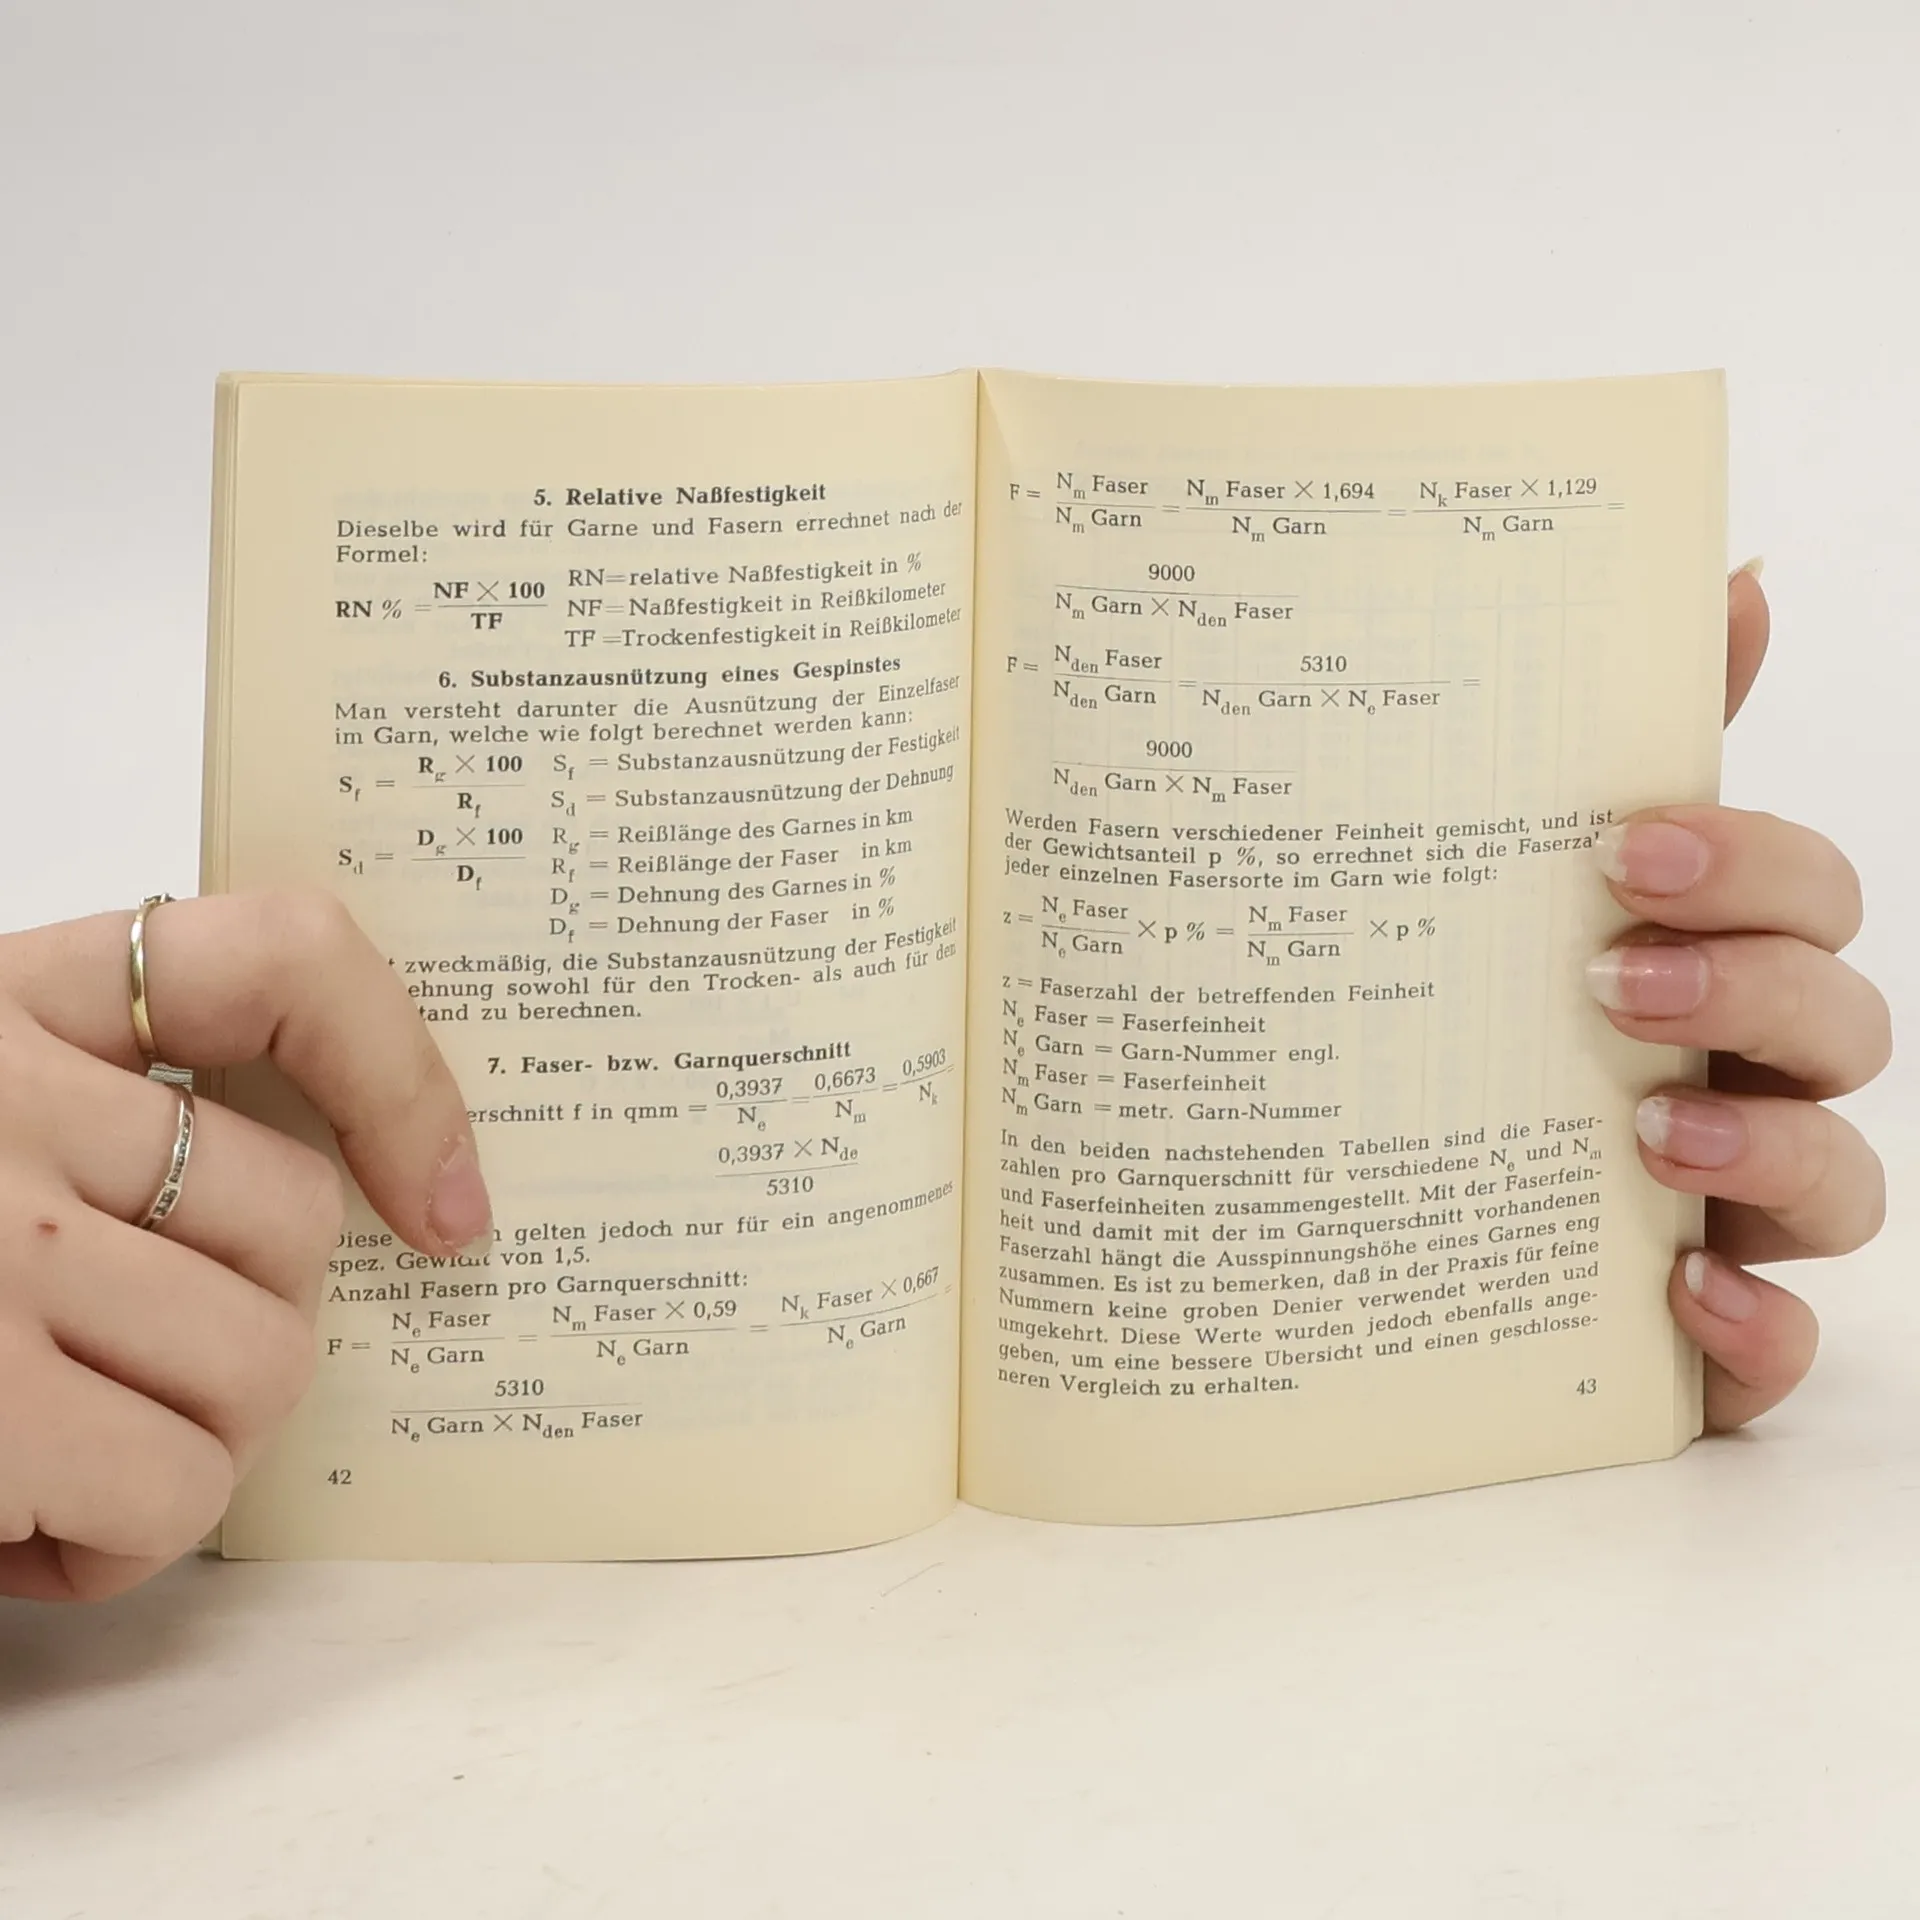 5. Relative Naßfestigkeit
Dieselbe wird für Garne und Fasern errechnet nach der
Formel:
RN % = NF × 100 / TF
RN=relative Naßfestigkeit in %
NF=Naßfestigkeit in Reißkilometer
TF=Trockenfestigkeit in Reißkilometer
6. Substanzausnützung eines Gespinstes
Man versteht darunter die Ausnützung der Einzelfaser
im Garn, welche wie folgt berechnet werden kann:
S_f = R_g × 100 / R_f
S_d = D_g × 100 / D_f
S_f = Substanzausnützung der Festigkeit
S_d = Substanzausnützung der Dehnung
R_g = Reißlänge des Garnes in km
R_f = Reißlänge der Faser in km
D_g = Dehnung des Garnes in %
D_f = Dehnung der Faser in %
zweckmäßig, die Substanzausnützung der Festigkeit
ehnung sowohl für den Trocken- als auch für den
tand zu berechnen.
7. Faser- bzw. Garnquerschnitt
erschnitt f in qmm = 0,3937 / N_e = 0,6673 / N_m = 0,5903 / N_k =
0,3937 × N_de / 5310
Diese gelten jedoch nur für ein angenommenes
spez. Gewicht von 1,5.
Anzahl Fasern pro Garnquerschnitt:
F = N_e Faser / N_e Garn = N_m Faser × 0,59 / N_e Garn = N_k Faser × 0,667 / N_e Garn =
5310 / N_e Garn × N_den Faser
42
F = N_m Faser / N_m Garn = N_m Faser × 1,694 / N_m Garn = N_k Faser × 1,129 / N_m Garn =
9000 / N_m Garn × N_den Faser
F = N_den Faser / N_den Garn = 5310 / N_den Garn × N_e Faser =
9000 / N_den Garn × N_m Faser
Werden Fasern verschiedener Feinheit gemischt, und ist
der Gewichtsanteil p %, so errechnet sich die Faserza
jeder einzelnen Fasersorte im Garn wie folgt:
z = N_e Faser / N_e Garn × p % = N_m Faser / N_m Garn × p %
z = Faserzahl der betreffenden Feinheit
N_e Faser = Faserfeinheit
N_e Garn = Garn-Nummer engl.
N_m Faser = Faserfeinheit
N_m Garn = metr. Garn-Nummer
In den beiden nachstehenden Tabellen sind die Faser-
zahlen pro Garnquerschnitt für verschiedene N_e und N_m
und Faserfeinheiten zusammengestellt. Mit der Faserfein-
heit und damit mit der im Garnquerschnitt vorhandenen
Faserzahl hängt die Ausspinnungshöhe eines Garnes eng
zusammen. Es ist zu bemerken, daß in der Praxis für feine
Nummern keine groben Denier verwendet werden und
umgekehrt. Diese Werte wurden jedoch ebenfalls ange-
geben, um eine bessere Übersicht und einen geschlosse-
neren Vergleich zu erhalten.
43